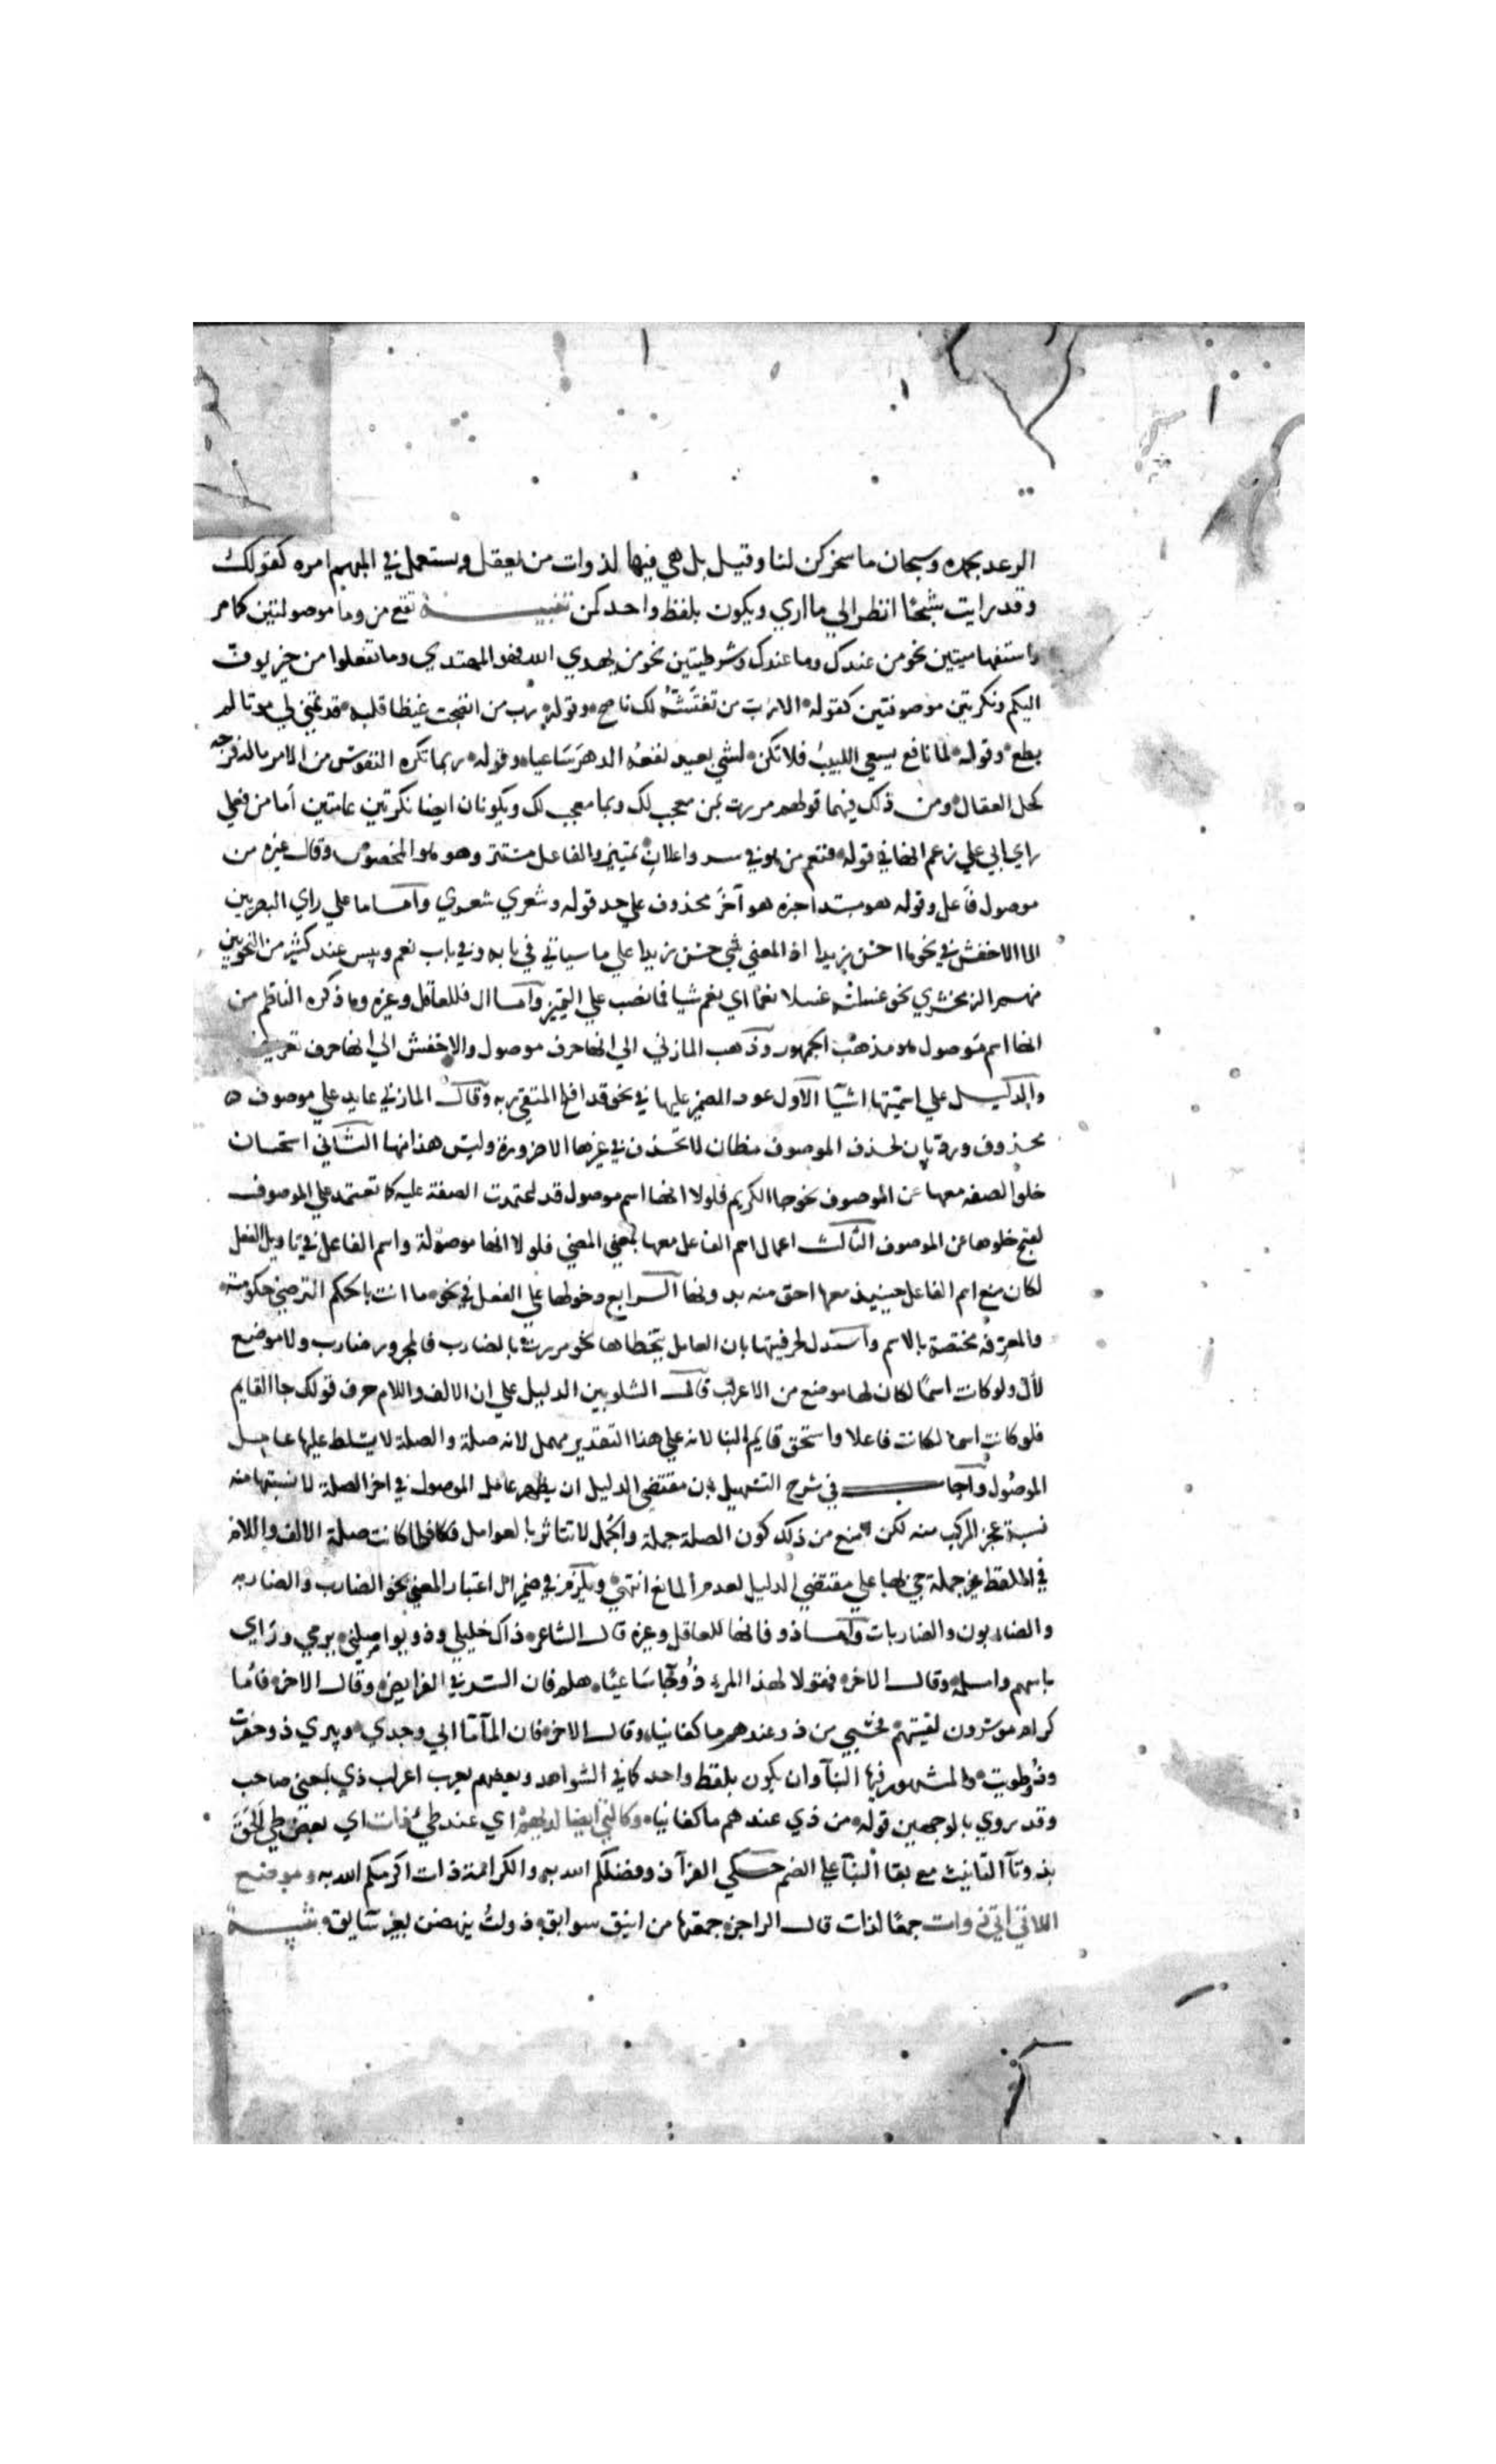 الرعد بحمده وسبحان ما سخركن لنا وقيل بل هي فيها لذوات من يعقل ويستعمل في المبهم امره كقولك
وقد رايت شبحًا انظر الي ما اري ويكون بلفظ واحد كمن تنبيه تقع من وما موصولتين كما مر
واستفهاميتين نحو من عندك وما عندك وشرطيتين نحو من يهدي الله فهو المهتدي وما تنفعلوا من خير يوف
اليكم ونكرتين موصوفتين كقوله الا رب من تغتشه لك ناصح وقوله رب من انضجت غيظا قلبه قد تمني لي موتا لم
يطع وقوله لما نافع يسعي اللبيب فلا تكن لشي بعيد نفعه الدهر ساعيا وقوله ربما تكره النفوس من الامر ماله فرجه
كحل العقال ومن ذلك فيهما قولهم مررت بمن معجب لك وبما معجب لك ويكونان ايضا نكرتين تامتين أما من فعلي
راي ابي علي زعم انها في قوله فنعم من هو في سر واعلان تمييز والفاعل مستتر وهو هو المخصوص وقال غيره من
موصول فاعل وقوله هو مبتدا خبره هو آخر محذوف علي حد قوله وشعري شعري وأما ما علي راي البصريين
الا الاخفش في نحو ما احسن زيدا اذ المعني شي حسن زيدا علي ما سياتي في بابه وفي باب نعم وبيس عند كثير من النحويين
منهم الزمخشري نحو غسلته غسلا نعما اي نعم شيا فما نصب علي التمييز وأما ال فللعاقل وغيره وما ذكره الناظم من
انها اسم موصول هو مذهب الجمهور وذهب المازني الي انها حرف موصول والاخفش الي انها حرف تعريف
والدليل علي اسميتها اشيا الاول عود الضمير عليها في نحو قد افلح المتقي ربه وقال المازني عايد علي موصوف
محذوف ورد بان لحذف الموصوف مظان لا تحذف في غيرها الا ضرورة وليس هذا منها الثاني استحسان
خلو الصفه معها عن الموصوف نحو جا الكريم فلولا انها اسم موصول قد اعتمدت الصفة عليه كما تعتمد علي الموصوف
لقبح خلوها عن الموصوف الثالث اعمال اسم الفاعل معها بمعني المضي فلولا انها موصولة واسم الفاعل في تاويل الفعل
لكان منع اسم الفاعل حينيذ معها احق منه بدونها الرابع دخولها علي الفعل في نحو ما انت بالحكم الترضي حكومته
والمعرفه مختصة بالاسم واستدل لحرفيتها بان العامل يتخطاها نحو مررت بالضارب فالمجرور ضارب ولا موضع
لأل ولو كانت اسمًا لكان لها موضع من الاعراب قال الشلوبين الدليل علي ان الالف واللام حرف قولك جا القايم
فلو كانت اسما لكانت فاعلا واستحق قايم البنا لانه علي هذا التقدير مهمل لانه صلة والصلة لا يتسلط عليها عامل
الموصول وأجاب في شرح التسهيل بان مقتضي الدليل ان يظهر عامل الموصول في اخر الصلة لان نسبتها منه
نسبة عجز المركب منه لكن منع من ذلك كون الصلة جملة والجمل لا تتاثر بالعوامل فكا فلما كانت صلة الالف واللام
في اللفظ غير جملة جي بها علي مقتضي الدليل لعدم المانع انتهي ويلزم في ضمير ال اعتبار المعني نحو الضارب والضاربه
والضاربون والضاربات وأما ذو فانها للعاقل وغيره قال الشاعر ذاك خليلي وذو يواصلني يرمي وراي
باسهم وامسلمه وقال الاخر فقولا لهذا المرء ذو جا ساعيا هلم فان المشرفي الفرايض وقال الاخر فاما
كرام موسرون لقيتهم فحسبي من ذو عندهم ما كفانيا وقال الاخر فان الما ما ابي وجدي وبيري ذو حفرت
وذو طويت والمشهور فيها البنا وان يكون بلفظ واحد كما في الشواهد وبعضهم يعرب اعراب ذي بمعني صاحب
وقد روي بالوجهين قوله من ذي عندهم ما كفانيا وكالتي ايضا لديهم اي عند طيئ ذات اي بعض طي الحق
بذو تا التانيث مع بقا البنا علي الضم حكي الفرا ذو فضلكم الله به والكرامة ذات اكرمكم الله به وموضع
اللاتي اتي ذوات جمعًا لذات قال الراجز جمعتها من اينق سوابق ذوات ينهضن بغير سايق